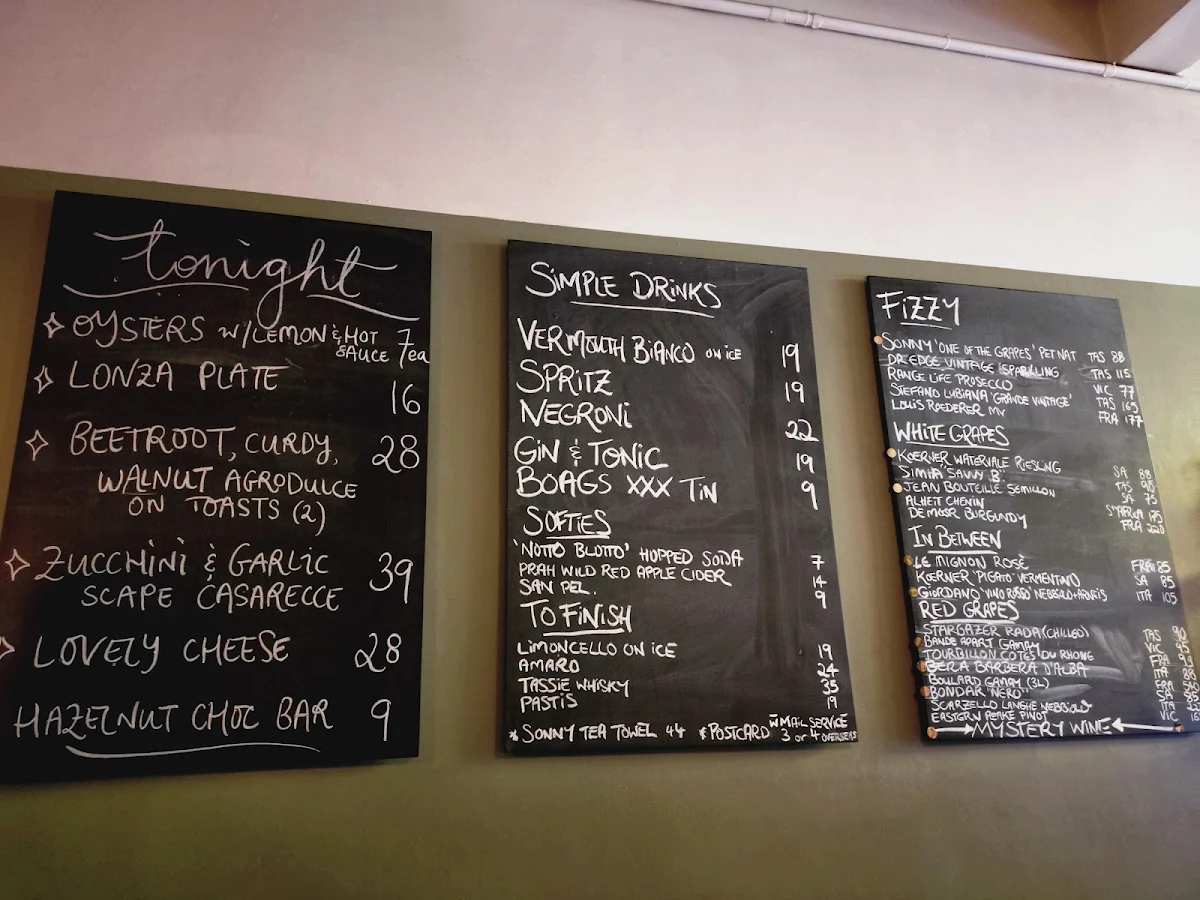 tonight
OYSTERS w/LEMON & HOT SAUCE 7ea
LONZA PLATE 16
BEETROOT, CURDY, 28
WALNUT AGRODULCE
ON TOASTS (2)
ZUCCHINI & GARLIC 39
SCAPE CASARECCE
LOVELY CHEESE 28
HAZELNUT CHOC BAR 9
SIMPLE DRINKS
VERMOUTH BIANCO ON ICE 19
SPRITZ 19
NEGRONI 22
GIN & TONIC 19
BOAGS XXX TIN 9
SOFTIES
'NOTTO BLOTTO' HOPPED SODA 7
PRAH WILD RED APPLE CIDER 14
SAN PEL. 9
TO FINISH
LIMONCELLO ON ICE 19
AMARO 24
TASSIE WHISKY 35
PASTIS 19
* SONNY TEA TOWEL 44 * POSTCARD w MAIL SERVICE 3 or 4 OVERSEAS
FIZZY
SONNY 'ONE OF THE GRAPES' PET NAT TAS 88
DR EDGE VINTAGE SPARKLING TAS 115
RANGE LIFE PROSECCO VIC 77
STEFANO LUBIANA 'GRANDE VINTAGE' TAS 165
LOUIS ROEDERER MV FRA 177
WHITE GRAPES
KOERNER WATERVALE RIESLING SA 88
SIMHA 'SAVVY B' TAS
JEAN BOUTEILLE SEMILLON SA 75
ALHEIT CHENIN STH AFRICA 175
DE MOOR BURGUNDY FRA 220
IN BETWEEN
LE MIGNON ROSÉ FRA 85
KOERNER 'PIGATO VERMENTINO' SA 85
GIORDANO 'VINO ROSSO' NEBBIOLO+ARNEIS ITA 105
RED GRAPES
STARGAZER RADA (CHILLED) TAS 90
BANDE APART GAMAY VIC
TOURBILLON COTES DU RHONE FRA
BERA BARBERA D'ALBA ITA
BOULARD GAMAY (3L) FRA
BONDAR 'NERO' SA
SCARZELLO LANGHE NEBBIOLO ITA
EASTERN PEAKE PINOT VIC
MYSTERY WINE